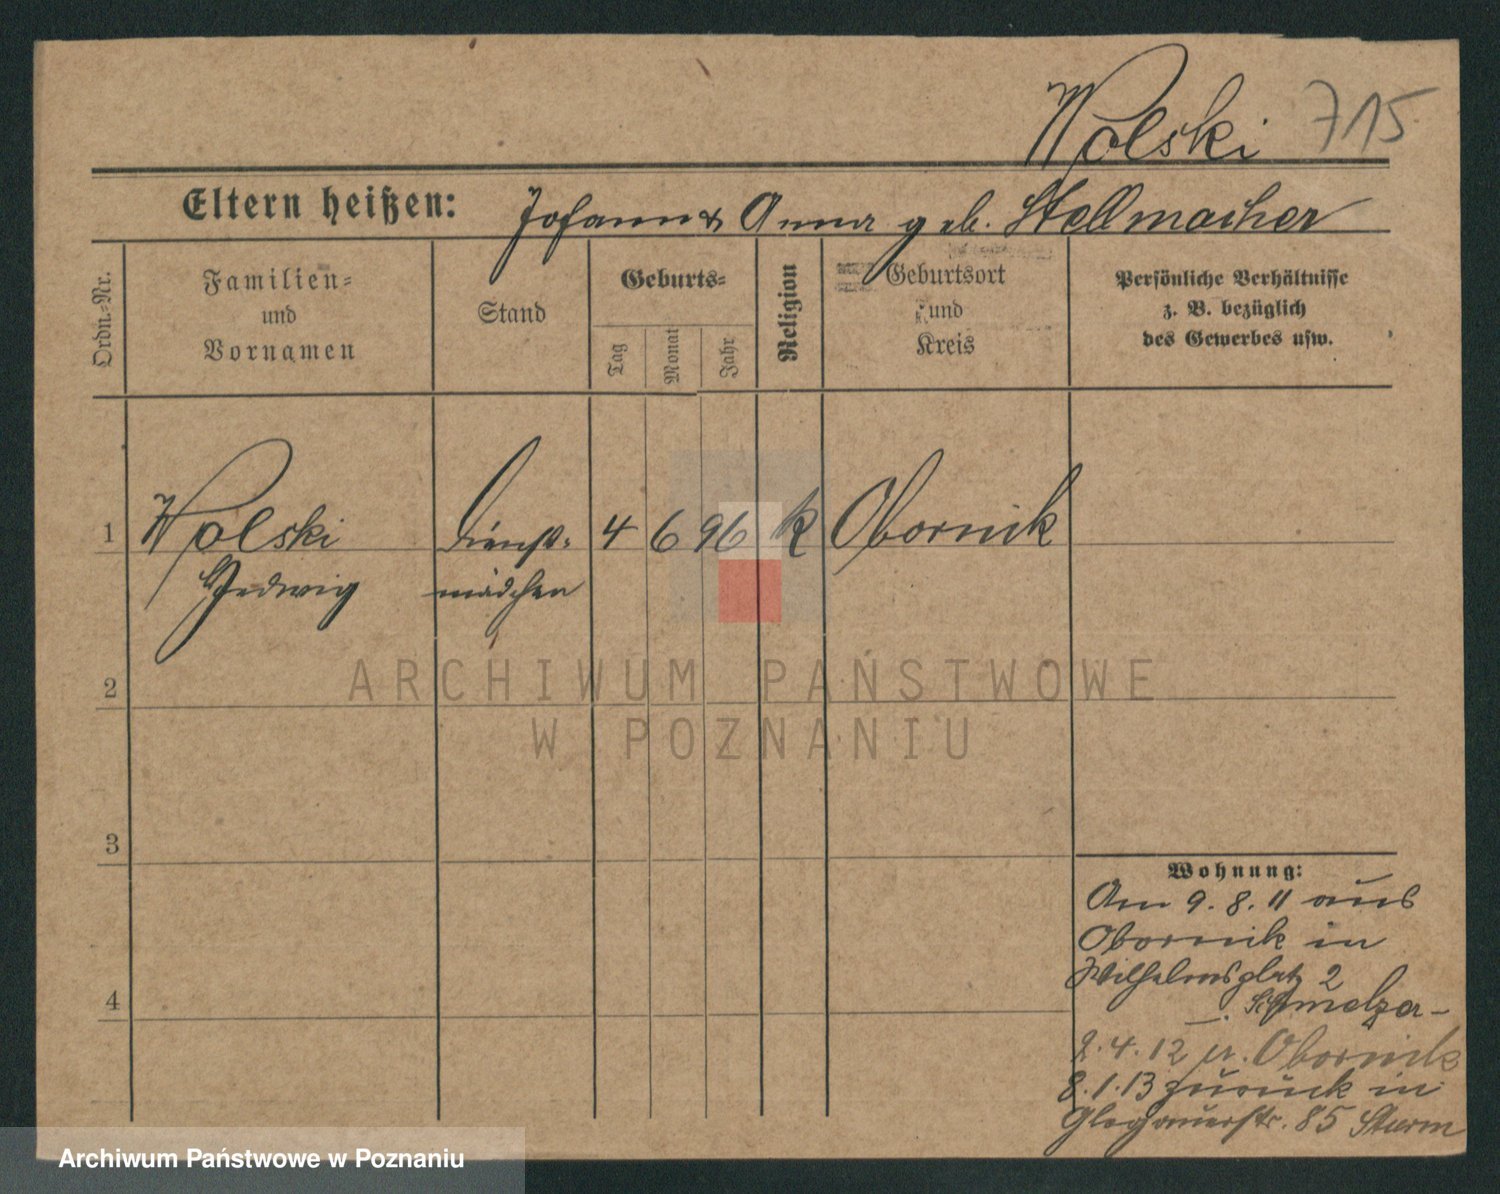 Wolski 715
Eltern heißen: Johann & Anna geb. Stellmacher
Ordn.-Nr.
Familien-
und
Vornamen
Stand
Geburts-
Tag
Monat
Jahr
Religion
Geburtsort
und
Kreis
Persönliche Verhältnisse
z. B. bezüglich
des Gewerbes usw.
1 Wolski Dienst- 4 6 96 k Obornik
Hedwig mädchen
2
3
4
Wohnung:
Am 9.8.11 aus
Obornik in
Wilhelmsplatz 2
Schmelzer
2.4.12 n. Obornik
8.1.13 zurück in
Glogauerstr. 85 Sturm
ARCHIWUM PAŃSTWOWE
W POZNANIU
Archiwum Państwowe w Poznaniu